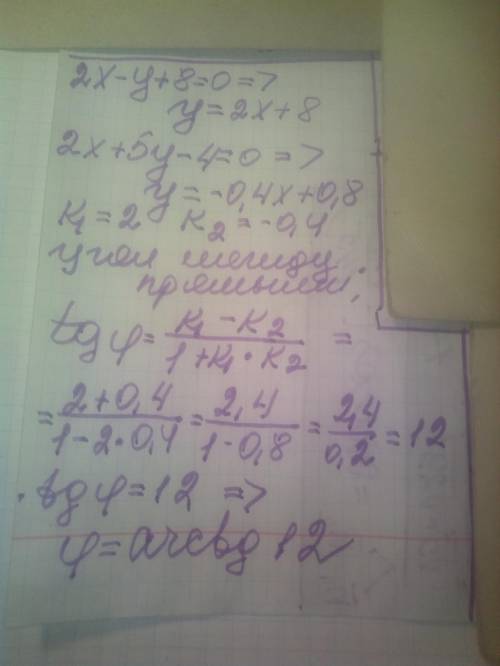 2x-y+8=0 =>
y=2x+8
2x+5y-4=0 =>
y=-0,4x+0,8
K₁=2 K₂=-0,4
Угол между
прямыми:
tg φ = (K₁-K₂)/(1+K₁·K₂) =
= (2+0,4)/(1-2·0,4) = 2,4/(1-0,8) = 2,4/0,2 = 12
tg φ=12 =>
φ=arctg 12